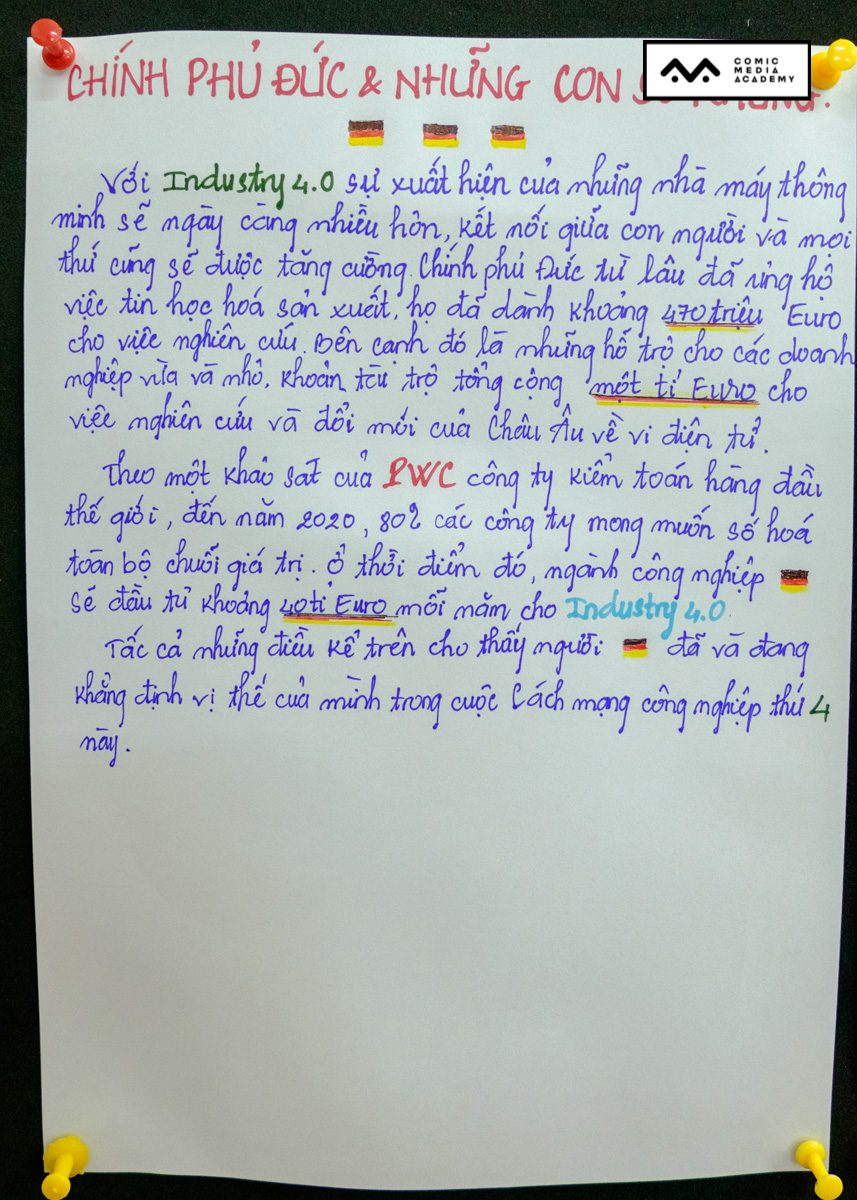 CHÍNH PHỦ ĐỨC & NHỮNG CON
COMIC
MEDIA
ACADEMY
Với Industry 4.0 sự xuất hiện của những nhà máy thông
minh sẽ ngày càng nhiều hơn, kết nối giữa con người và mọi
thứ cũng sẽ được tăng cường. Chính phủ Đức từ lâu đã ủng hộ
việc tin học hoá sản xuất, họ đã dành khoảng 470 triệu Euro
cho việc nghiên cứu. Bên cạnh đó là những hỗ trợ cho các doanh
nghiệp vừa và nhỏ, khoản tài trợ tổng cộng một tỉ Euro cho
việc nghiên cứu và đổi mới của Châu Âu về vi điện tử.
Theo một khảo sát của PWC công ty kiểm toán hàng đầu
thế giới, đến năm 2020, 80% các công ty mong muốn số hoá
toàn bộ chuỗi giá trị. Ở thời điểm đó, ngành công nghiệp
sẽ đầu tư khoảng 40 tỉ Euro mỗi năm cho Industry 4.0.
Tấc cả những điều kể trên cho thấy người đã và đang
khẳng định vị thế của mình trong cuộc Cách mạng công nghiệp thứ 4
này.